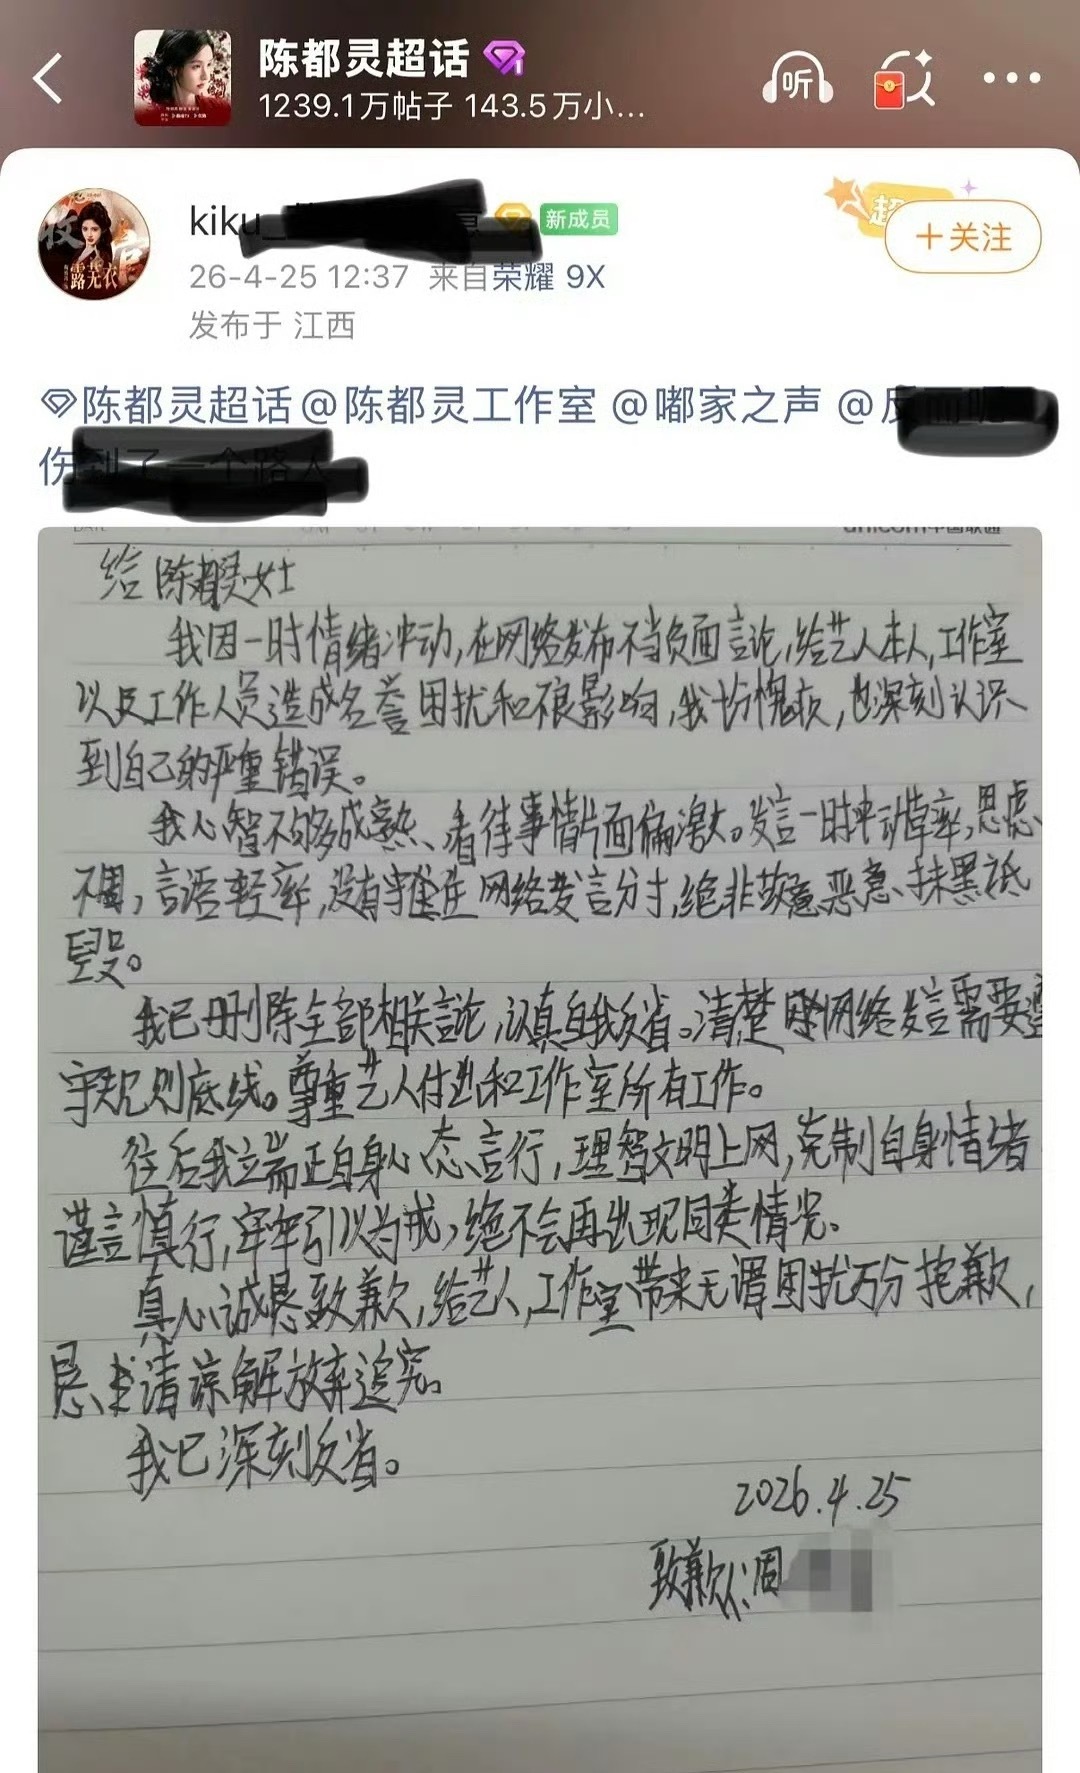 陈都灵超话
1239.1万帖子 143.5万小...
听
kiku_
新成员
超
+关注
26-4-25 12:37 来自荣耀 9X
发布于 江西
陈都灵超话@陈都灵工作室 @嘟家之声 @反
伤到了一个路人
收官
露芜衣
unicom中国联通
给陈都灵女士
我因一时情绪冲动,在网络发布不当负面言论,给艺人本人,工作室
以及工作人员造成名誉困扰和不良影响,我十分愧疚,也深刻认识
到自己的严重错误。
我心智不够成熟、看待事情片面偏激。发言一时冲动草率,思虑
不周,言语轻率,没有掌握住网络发言分寸,绝非故意恶意、抹黑诋
毁。
我已删除全部相关言论,认真自我反省。清楚网络发言需要遵
守规则底线。尊重艺人付出和工作室所有工作。
往后我立端正自身心态言行,理智文明上网,克制自身情绪
谨言慎行,牢牢引以为戒,绝不会再出现同类情况。
真心诚恳致歉,给艺人,工作室带来无谓困扰万分抱歉,
恳求请谅解放弃追究。
我已深刻反省。
2026.4.25
致歉人:周